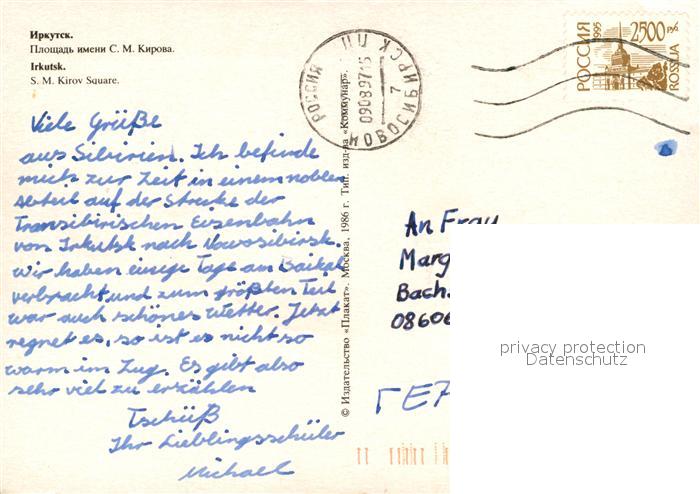 Иркутск.
Площадь имени С. М. Кирова.
Irkutsk.
S. M. Kirov Square.
Viele Grüße
aus Sibirien. Ich befinde
mich zur Zeit in einem noblen
Abteil auf der Strecke der
Transibirischen Eisenbahn
von Irkutsk nach Nowosibirsk.
Wir haben einige Tage am Baikal
verbracht und zum größten Teil
war auch schönes Wetter. Jetzt
regnet es, so ist es nicht so
warm im Zug. Es gibt also
sehr viel zu erzählen
Tschüß
Ihr Lieblingsschüler
Michael
© Издательство «Плакат». Москва, 1986 г. Тип. изд-ва «Коммунар».
РОССИЯ НОВОСИБИРСК ПП
090897 15
7
РОССИЯ
1995
2500 РУБ
ROSSIJA
An Frau
Marg
Bach
08606
privacy protection
Datenschutz